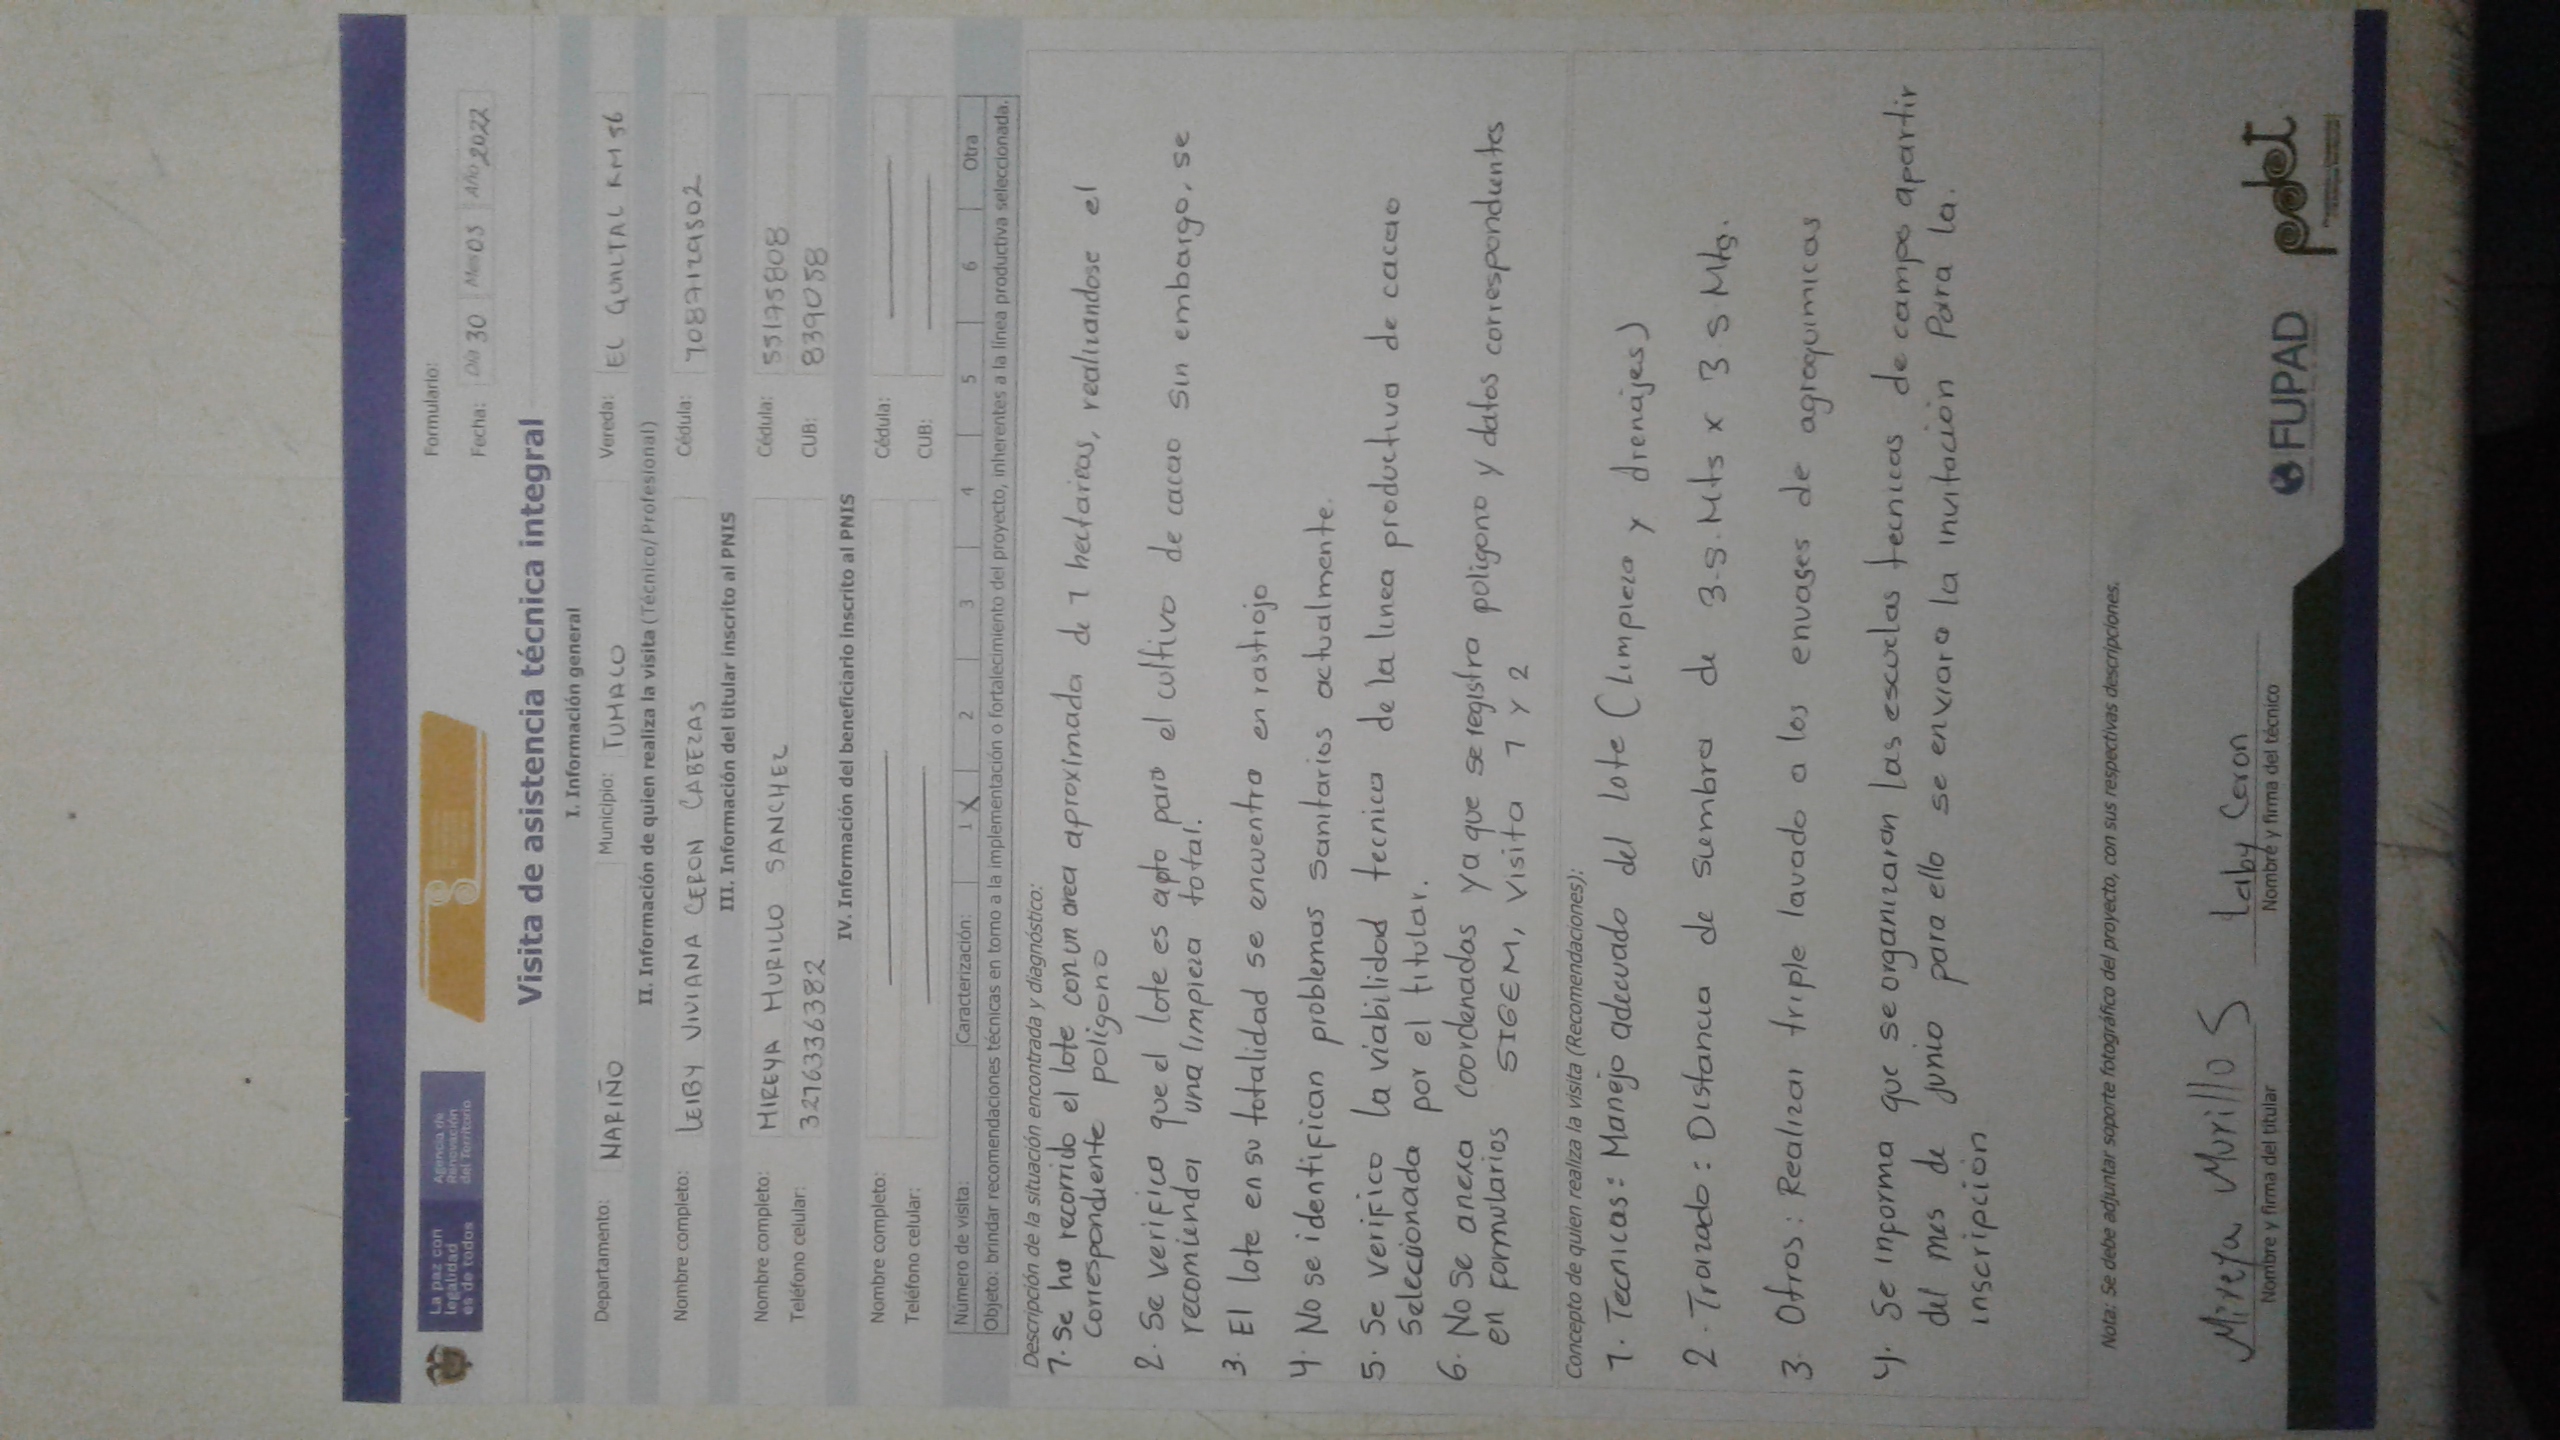 La paz con
legalidad
es de todos
Agencia de
Renovación
del Territorio
Formulario:
Fecha: Día 30 Mes 05 Año 2022
Visita de asistencia técnica integral
I. Información general
Departamento: NARIÑO Municipio: TUMACO Vereda: EL GUALTAL KM 56
II. Información de quien realiza la visita (Técnico/ Profesional)
Nombre completo: LEIBY VIVIANA CERON CABEZAS Cédula: 1087129502
III. Información del titular inscrito al PNIS
Nombre completo: MIREYA MURILLO SANCHEZ Cédula: 55175808
Teléfono celular: 3216336382 CUB: 839058
IV. Información del beneficiario inscrito al PNIS
Nombre completo: Cédula:
Teléfono celular: CUB:
Número de visita: Caracterización: 1 X 2 3 4 5 6 Otra
Objeto: brindar recomendaciones técnicas en torno a la implementación o fortalecimiento del proyecto, inherentes a la línea productiva seleccionada.
Descripción de la situación encontrada y diagnóstico:
1. Se ha recorrido el lote con un area aproximada de 1 hectareas, realizandose el
correspondiente poligono
2. Se verifico que el lote es apto para el cultivo de cacao sin embargo, se
recomienda una limpieza total.
3. El lote en su totalidad se encuentra en rastrojo
4. No se identifican problemas sanitarios actualmente.
5. Se verifico la viabilidad tecnica de la linea productiva de cacao
seleccionada por el titular.
6. No se anexa coordenadas ya que se registro poligono y datos correspondientes
en formularios SIGEM, visita 1 y 2
Concepto de quien realiza la visita (Recomendaciones):
1. Tecnicas: Manejo adecuado del lote (limpieza y drenajes)
2. Trazado: Distancia de siembra de 3.5.Mts x 3.5 Mts.
3. Otros: Realizar triple lavado a los envases de agroquimicos
4. Se informa que se organizaran las escuelas tecnicas de campo apartir
del mes de junio para ello se enviara la invitación Para la.
inscripción
Nota: Se debe adjuntar soporte fotográfico del proyecto, con sus respectivas descripciones.
Mireya Murillo S Leiby Ceron
Nombre y firma del titular Nombre y firma del técnico
FUPAD
pdet